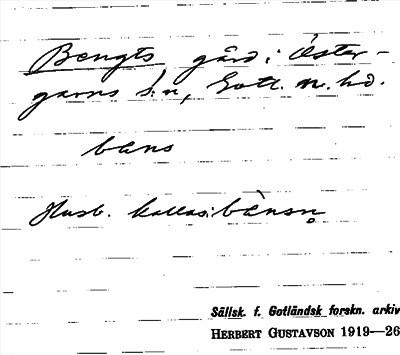 Bengts, gård i Öster-
garns s:n, Gotl. n. hd.
bans
Husb. kallas: bànsn̥
Sällsk. f. Gotländsk forskn. arkiv
HERBERT GUSTAVSON 1919—26